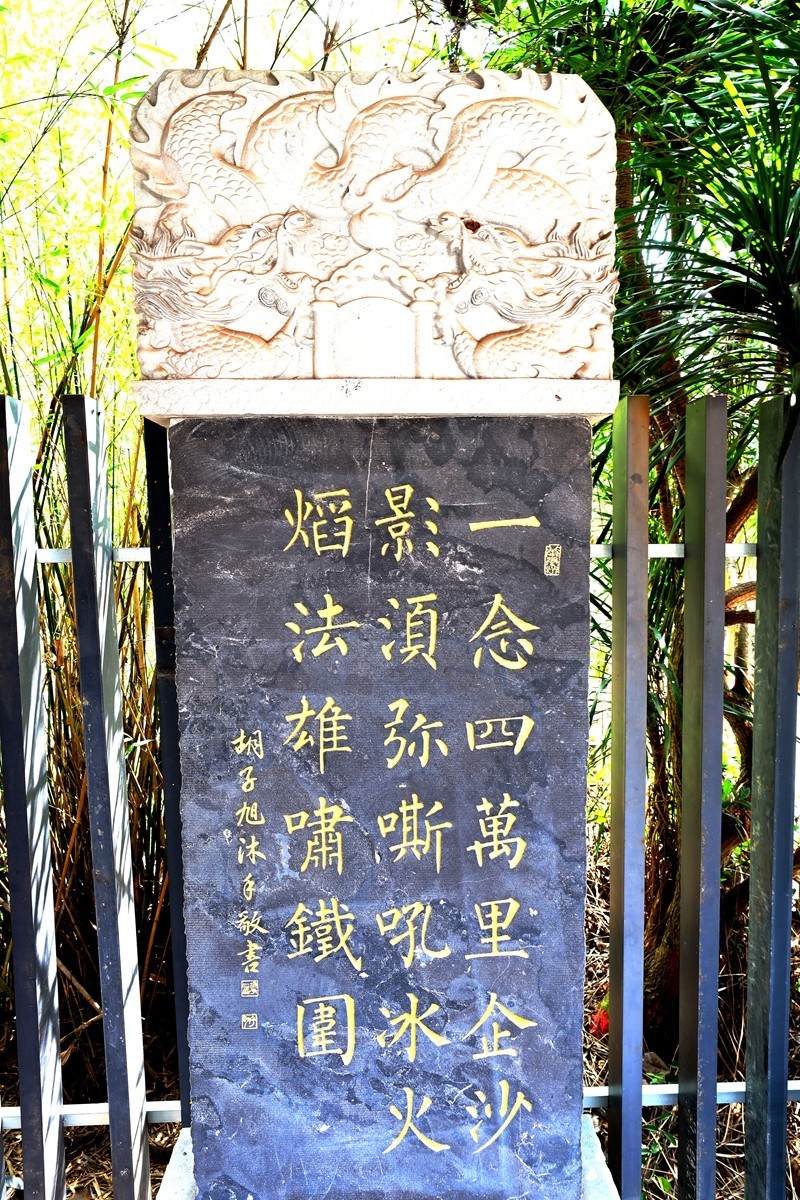 一念四萬里企沙
影湏弥嘶吼冰火
熖法雄嘯鐵圍
胡子旭沐手敬書